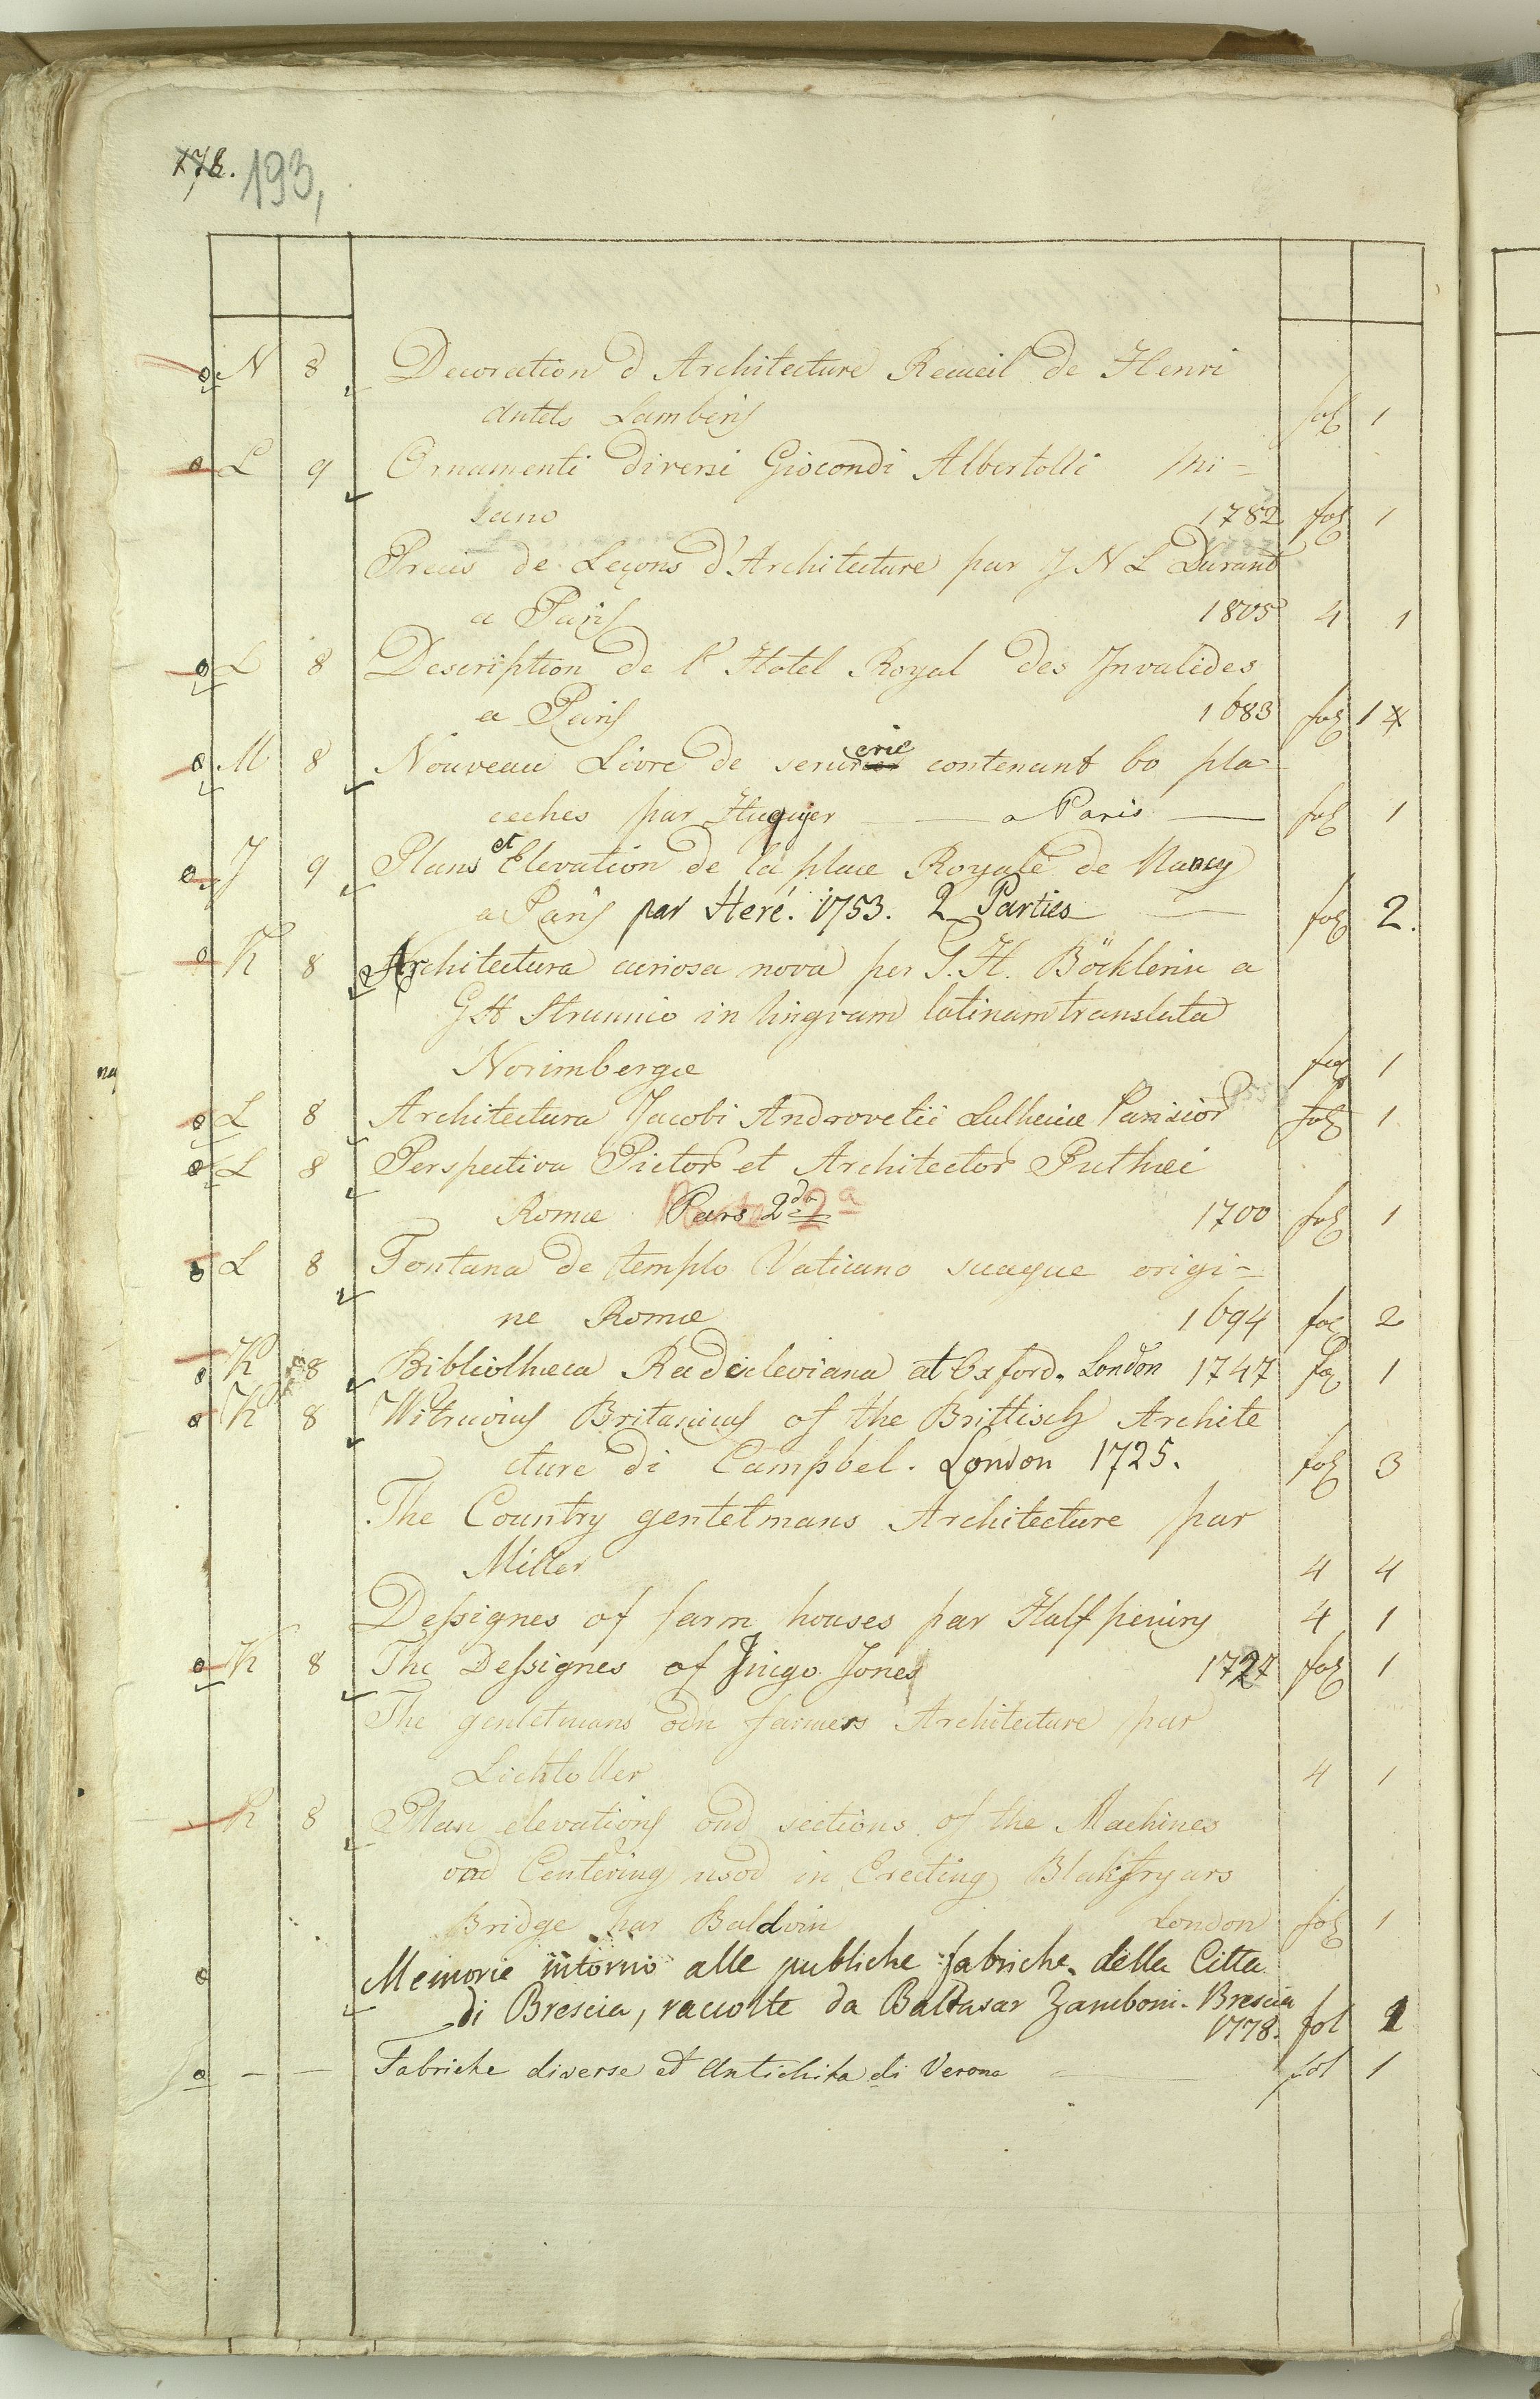 193,
N 8 Decoration d Architecture Recueil de Henri
Lambert fol 1
L 9 Ornamenti diversi Giocondi Albertolli Mi-
lano 1782 fol 1
Precis de Leçons d'Architecture par J N L Durand
a Paris 1805 4 1
L 8 Description de l' Hotel Royal des Invalides
a Paris 1683 fol 1
M 8 Nouveau Livre de serurerie contenant 60 pla-
nches par Huquier — a Paris — fol 1
J 9 Plans et Elevation de la place Royale de Nancy
a Paris par Heré. 1753. 2 Parties — fol 2.
K 8 Architectura curiosa nova per G. H. Böcklerin a
G H Strumio in lingvam latinam translata
Norimbergæ fol 1
L 8 Architectura Jacobi Androvetii Parisior fol 1
L 8 Perspectiva Pictor et Architector Puthei
Romæ Pars 2da 2a 1700 fol 1
L 8 Fontana de templo Vaticano suaque origi-
ne Romæ 1694 fol 2
K 8 Bibliothæca Radcleviana at Oxford. London 1747 fol 1
K 8 Witruvius Britanicus of the Brittisch Archite
cture di Campbel. London 1725. fol 3
The Country gentelmans Architecture par
Miller 4 4
Dessignes of farm houses par Halfpeniny 4 1
K 8 The Dessignes of Jnigo Jones 1727 fol 1
The gentelmans odn farmers Architecture par
Lichtoller 4 1
K 8 Plan elevations and sections of the Machines
and Centering used in Erecting Blakfryars
Bridge par Baldwin London fol 1
Memorie intorno alle publiche fabriche della Citta
di Brescia, raccolte da Baldasar Zamboni. Brescia
1778. fol 1
— — Fabriche diverse et Antichita di Verona — fol 1